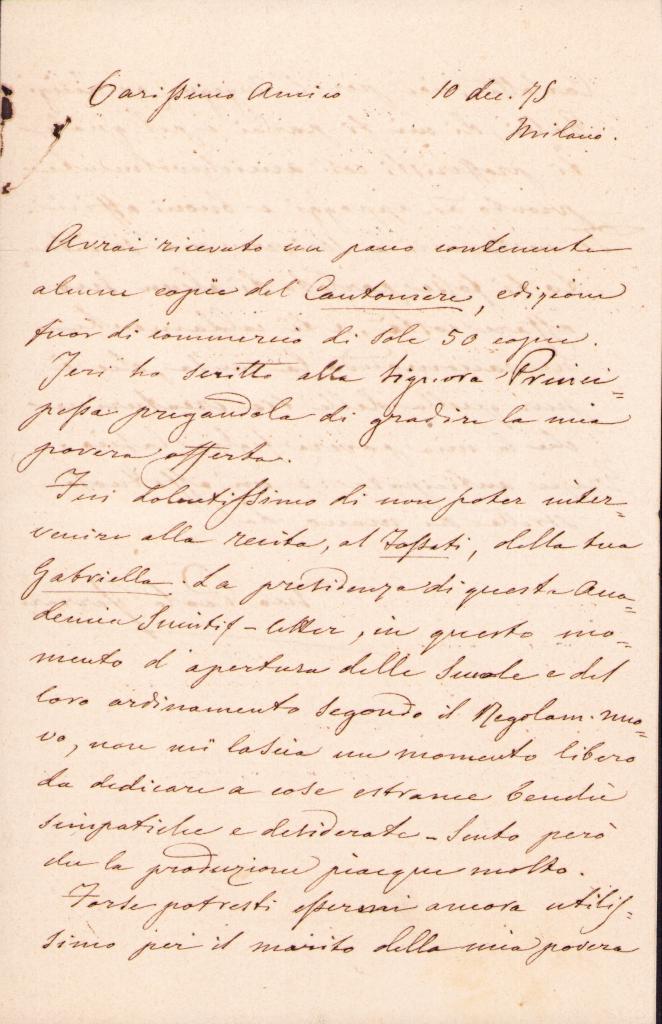 Carissimo Amico 10 dec. 75
Milano.
Avrai ricevuto un pacco contenente
alcune copie del Cantoniere, edizione
fuor di commercio di sole 50 copie.
Jeri ho scritto alla Signora Princi=
pessa pregandola di gradire la mia
povera offerta.
Fui dolentissimo di non poter inter=
venire alla recita, al Fossati, della tua
Gabriella. La presidenza di questa Acca=
demia Scientif-Letter, in questo mo=
mento d'apertura delle Scuole e del
loro ordinamento segondo il Regolam. nuo=
vo, non mi lascia un momento libero
da dedicare a cose estranee benchè
simpatiche e desiderate - Sento però
che la produzione piacque molto.
Forse potresti essermi ancora utilis=
simo per il marito della mia povera